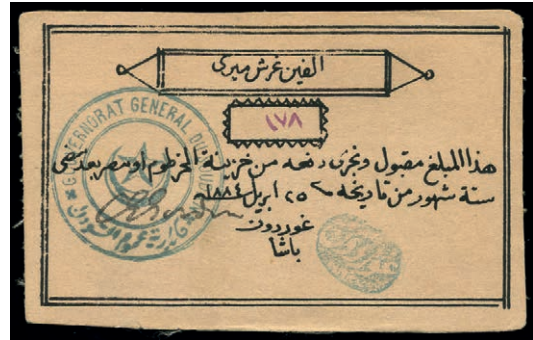 الفين غرش ميرى
١٧٨
هذا المبلغ مقبول ويجرى دفعه من خزينة الخرطوم او مصر بعد مضى
ستة شهور من تاريخه ٢٥ ابريل ١٨٨٤
غوردون
باشا
GOUVERNORAT GENERAL DU SOUDAN